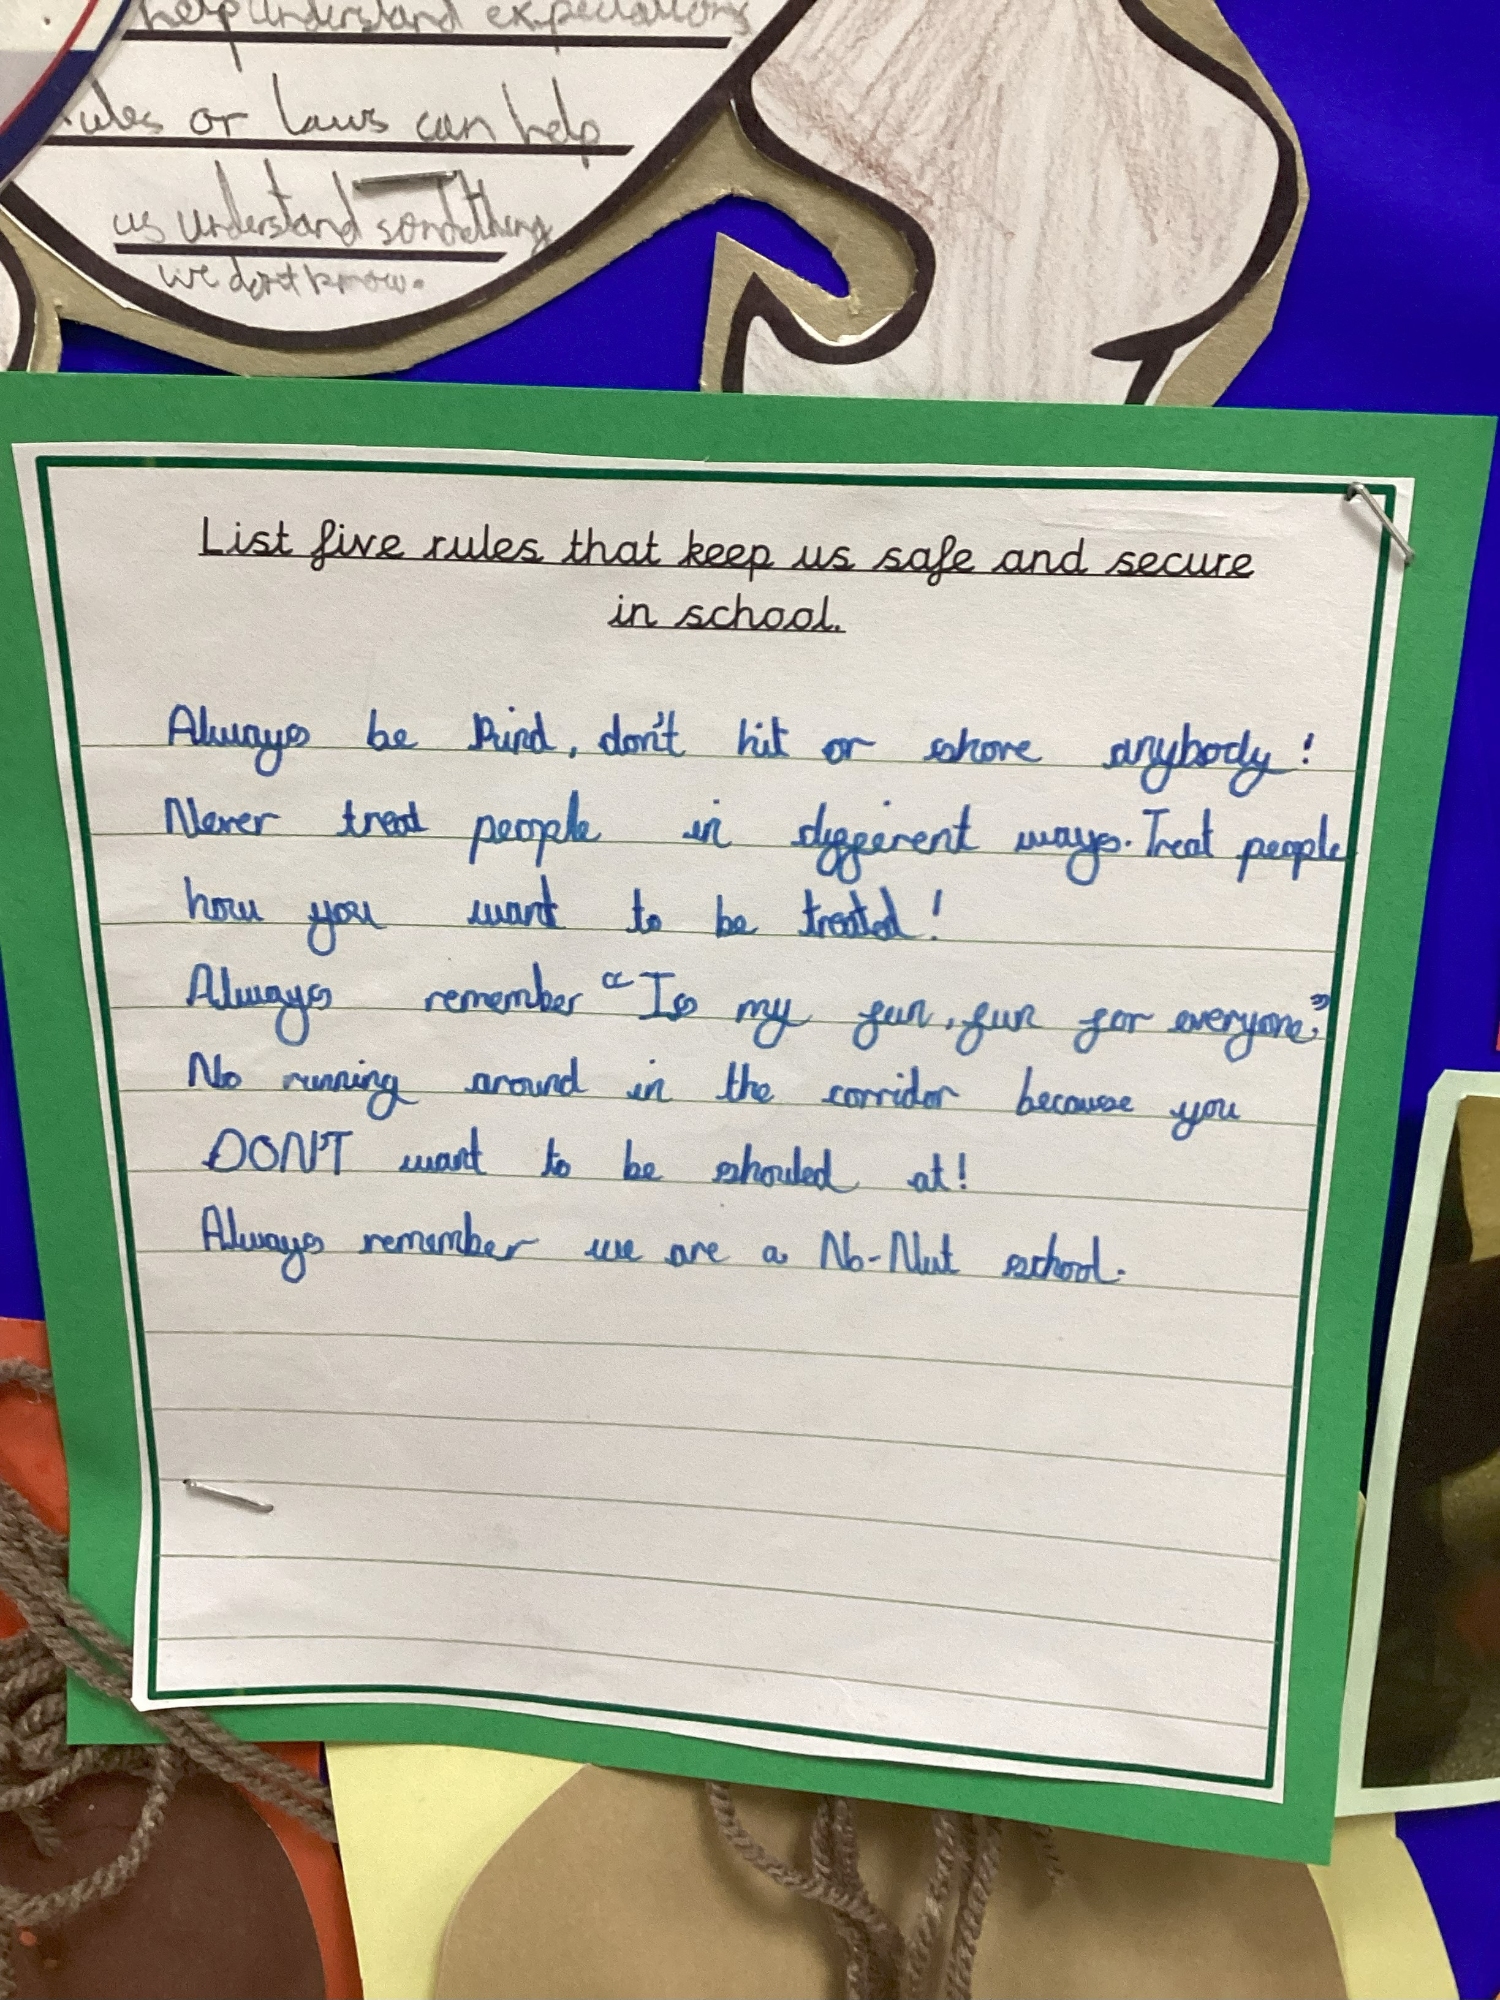 help understand expectations
rules or laws can help
us understand somdething
we don't know.
List five rules that keep us safe and secure
in school.
Always be kind, don't hit or shove anybody!
Never treat people in different ways. Treat people
how you want to be treated!
Always remember “Is my fun, fun for everyone?”
No running around in the corridor because you
DON'T want to be shouted at!
Always remember we are a No-Nut school.